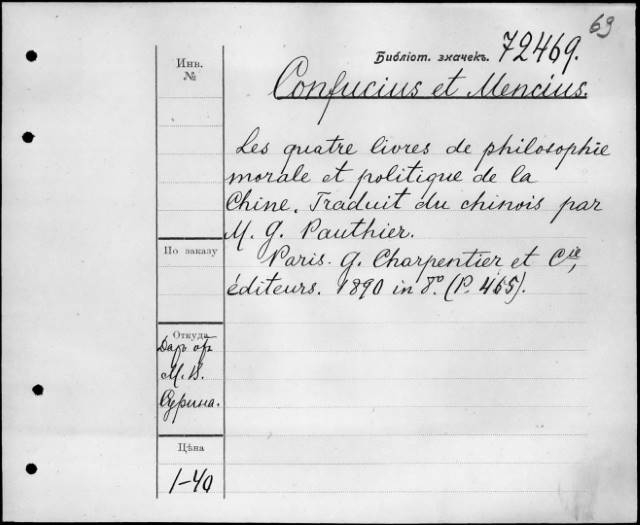 69
Библіот. значекъ. 72469.
Инв.
№
Confucius et Mencius.
Les quatre livres de philosophie
morale et politique de la
Chine. Traduit du chinois par
M. G. Pauthier.
Paris. G. Charpentier et Cie,
éditeurs. 1890 in 8º. (P. 465).
По заказу
Откуда
Даръ от
М. В.
Сурина.
Цѣна
1-40